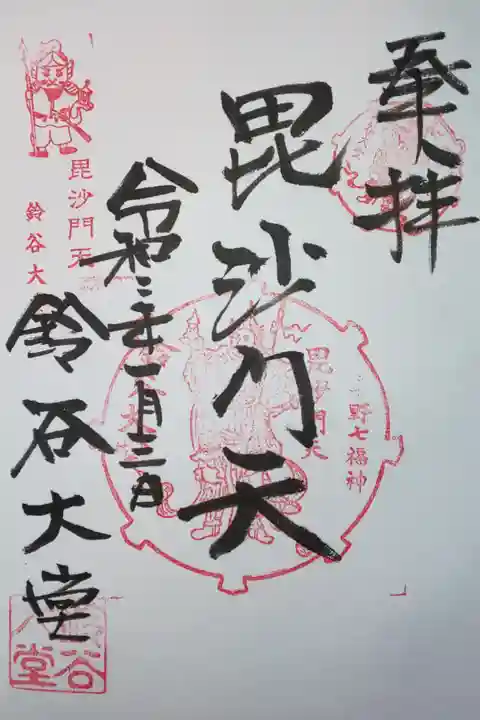 奉拝
毘沙門天
令和三年一月三日
鈴谷大堂
毘沙門天
鈴谷大
野七福神
毘沙門天
谷
堂